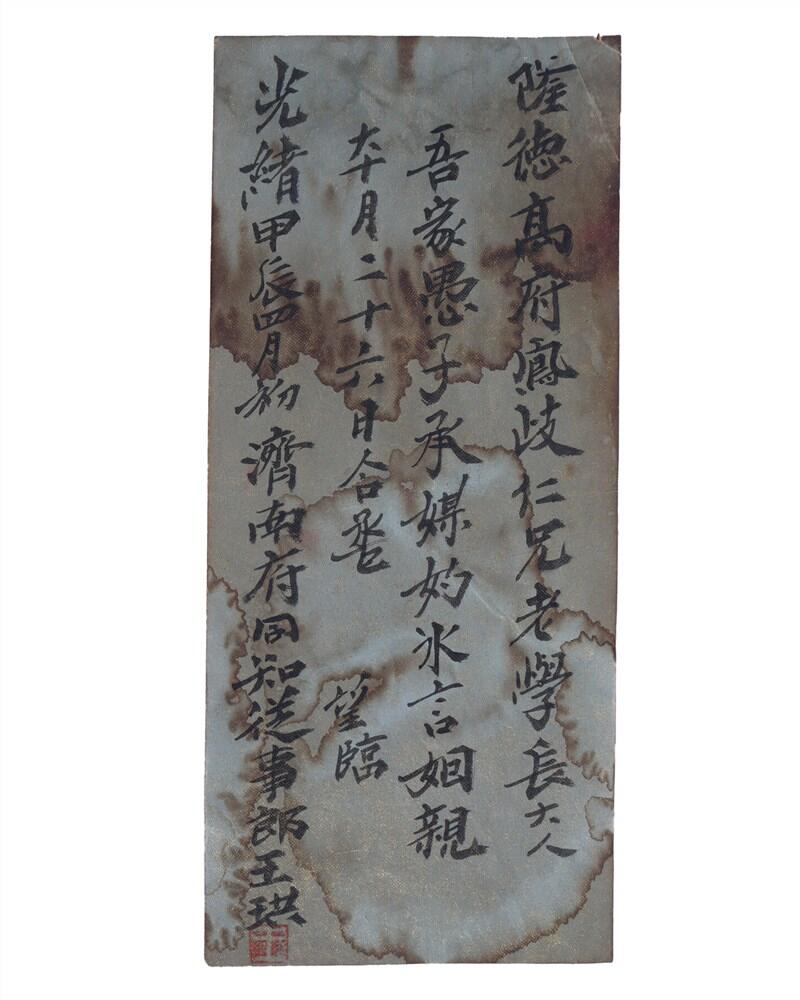 隆德高府鳳歧仁兄老學長大人
吾家愚子承媒妁冰言姻親
十月二十六日合卺 望臨
光緒甲辰四月初濟南府同知從事郎王珙